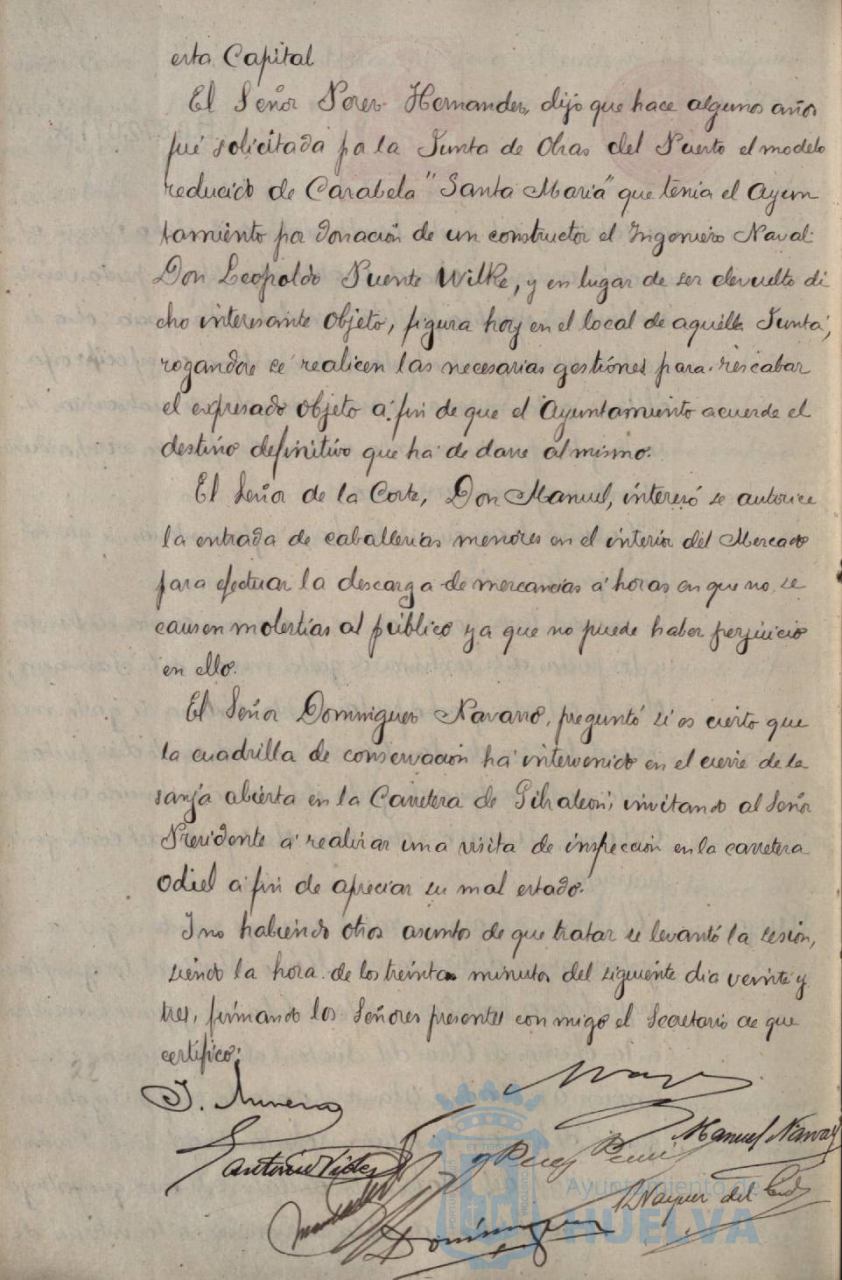 esta Capital
El Señor Perez Hernandez, dijo que hace algunos años
fué solicitada po la Junta de Obras del Puerto el modelo
reducido de Carabela "Santa Maria" que tenia el Ayun
tamiento por donación de un constructor el Ingeniero Naval
Don Leopoldo Puente Wilke, y en lugar de ser devuelto di
cho interesante objeto, figura hoy en el local de aquélla Junta,
rogandose se realicen las necesarias gestiónes para rescabar
el expresado objeto á fin de que el Ayuntamiento acuerde el
destino definitivo que ha de darse al mismo.
El Señor de la Corte, Don Manuel, interesó se autorice
la entrada de caballerias menores en el interior del Mercado
para efectuar la descarga de mercancias á horas en que no se
causen molestías al público ya que no puede haber perjuicio
en ello.
El Señor Dominguez Navarro, preguntó si es cierto que
la cuadrilla de conservación ha intervenido en el cierre de la
sanja abierta en la Carretera de Gibraleon; invitando al Señor
Presidente á realizar una visita de inspección en la carretera
Odiel á fin de apreciar su mal estado.
I no habiendo otros asuntos de que tratar se levantó la sesión,
siendo la hora de los treinta minutos del siguiente dia veinte y
tres, firmando los Señores presentes con migo el Secretario de que
certifico:
Antonio
Manuel Navarro
Perez
Vazquez del Cid
Dominguez
Ayuntamiento de
HUELVA